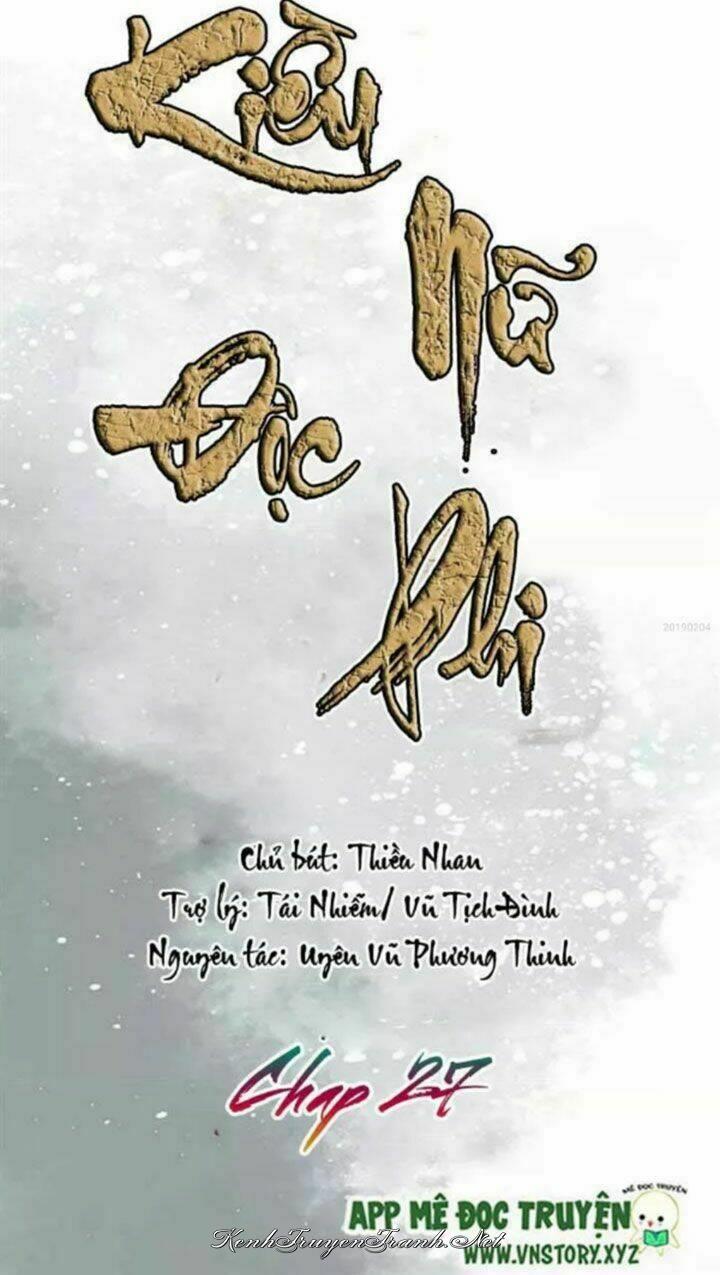 Kiều
Nữ
Độc
Phi
20190204
Chủ bút: Thiều Nhan
Trợ lý: Tái Nhiễm/ Vũ Tịch Đình
Nguyên tác: Uyên Vũ Phương Thinh
Chap 27
MÊ ĐỌC TRUYỆN
APP MÊ ĐỌC TRUYỆN
KenhTruyenTranh.Net
WWW.VNSTORY.XYZ